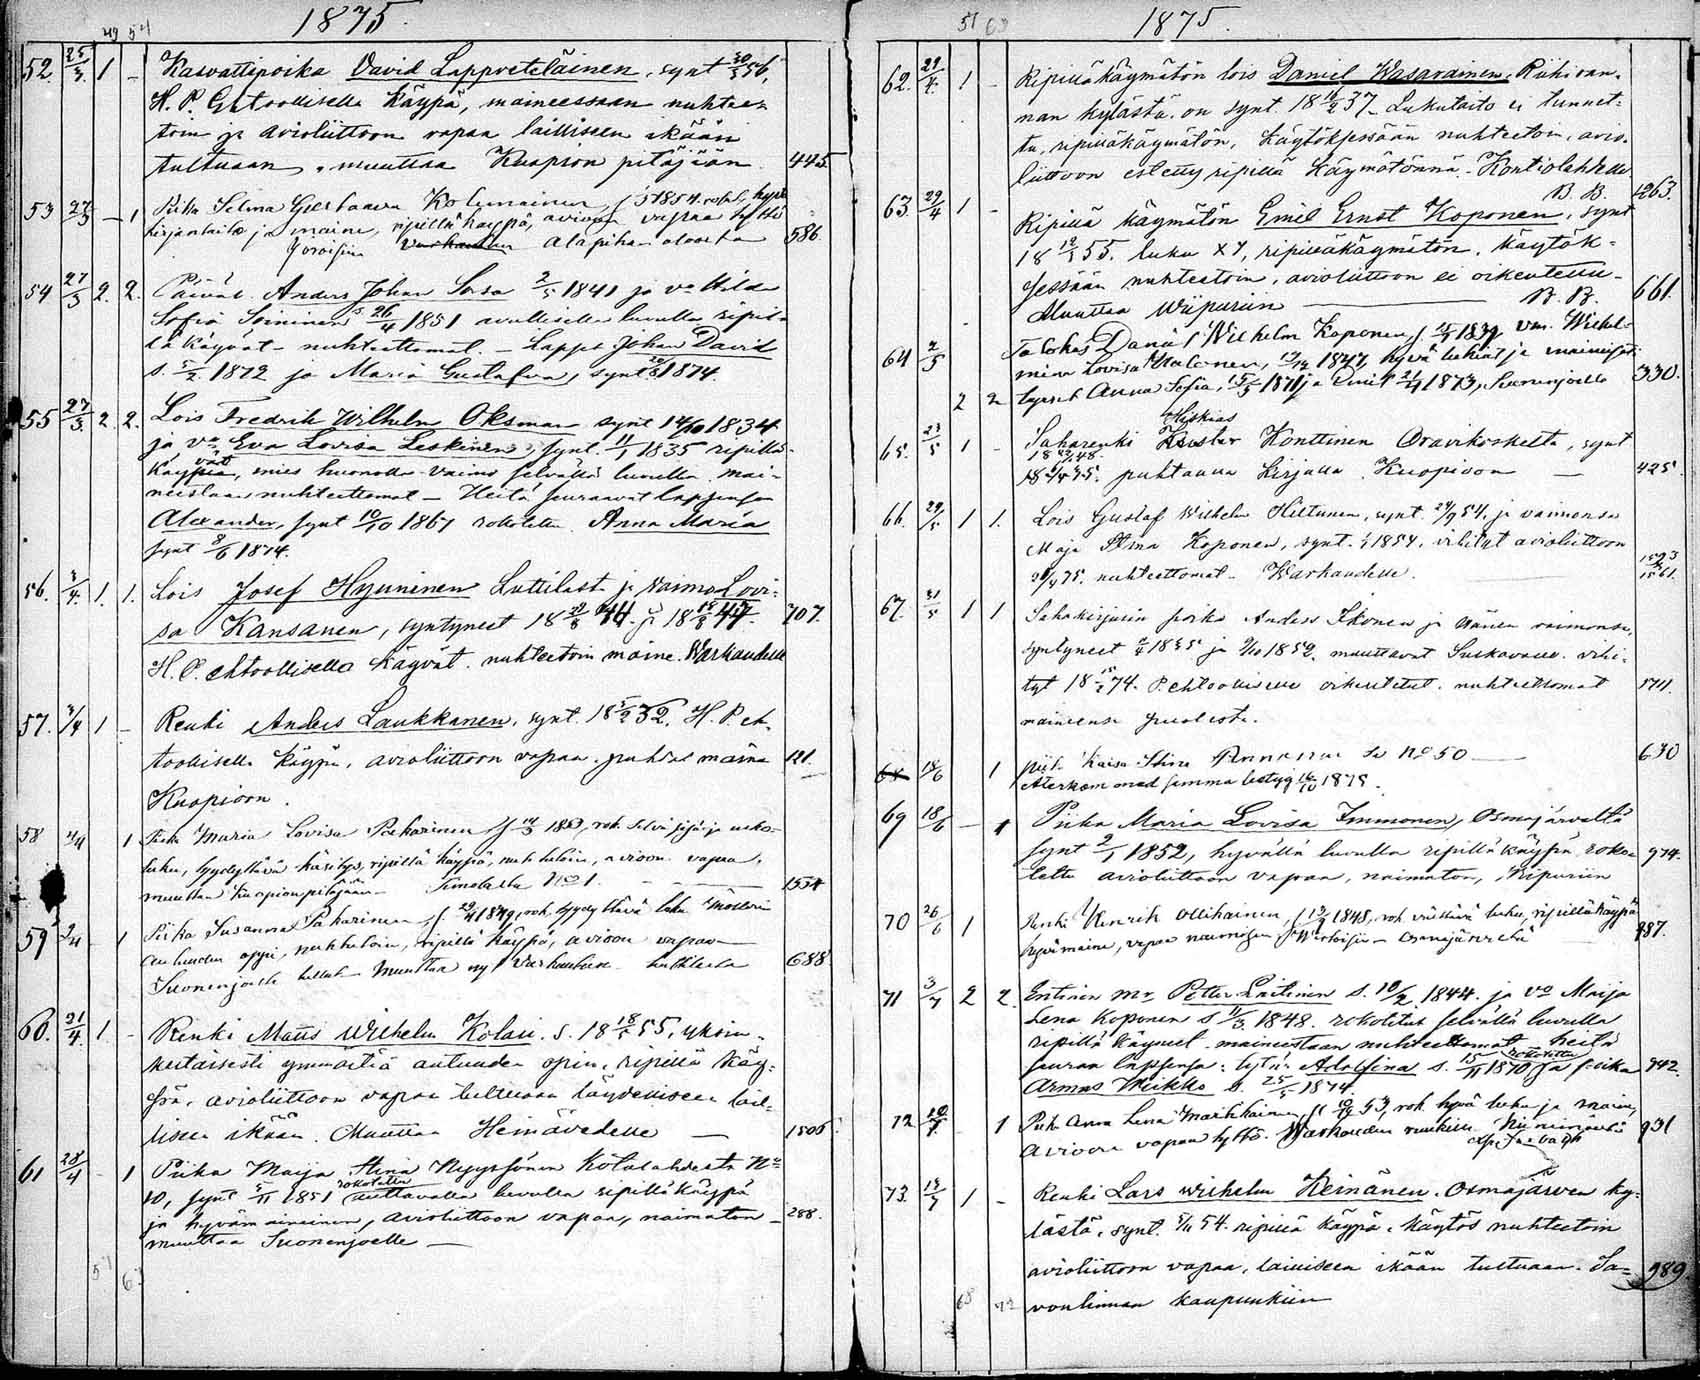 1875.
49 54
52. 25/3. 1 – Kasvattipoika David Lappveteläinen, synt 30/3 56,
H. P. Ehtoollisella käypä, maineessaan nuhtee-
toin ja avioliittoon vapaa lailliseen ikään
tultuaan, muuttaa Kuopion pitäjään 445.
53 27/3 – 1 Piika Selma Gustaava Kolemainen, 1854. rok. hyvä
kirjantaito ja maine, ripillä käypä, avioon vapaa tyttö 586.
Joroisiin Alapihan
54 27/3 2. 2. Anders Johan Sorsa 2/5 1841 ja vo Hilda
Sofia Soininen s. 26/4 1851 avullisella luvulla ripil-
lä käyvät – nuhteettomat. – Lapset Johan David
s. 5/2 1872 ja Maria Gustafva, synt 1874.
55 27/3 2. 2. Lois Fredrik Wilhelm Oksman synt 14/10 1834
ja vo Eva Lovisa Leskinen, synt. 11/1 1835 ripillä-
käypiä, mies huonolla vaimo selvällä luvulla mai-
neeltaan nuhteettomat – Heitä seuraavat lapsensa
Alexander, synt 10/10 1867 rokotettu. Anna Maria
synt 8/6 1874.
56. 3/4. 1. 1. Lois Josef Hynninen Luttilast ja Vaimo Lovi-
sa Kansanen, syntyneet 18 44 ja 18 47. 707.
H. P. ehtoollisella käyvät. nuhteetoin maine. Warkaudelle
57. 3/4 1 – Renki Anders Laukkanen, synt. 18 5/2 32. H. P. eh-
toollisella käypä, avioliittoon vapaa. puhdas maine 121.
Kuopioon.
58 4/4 1 Piika Maria Lovisa Pakarinen 1853, rok. selvä sisä- ja ulko-
luku, tyydyttävä käsitys, ripillä käypä, nuhteetoin, avioon vapaa,
muuttaa Kuopion pitäjään Timolasta No 1. 1554
59 9/4 1 Piika Susanna Pakarinen 29/4 1849, rok. tyydyttävä luku
autuuden oppi, nuhteetoin, ripillä käypä, avioon vapaa
Suonenjoelle muuttaa nyt Varkauteen 688.
60. 21/4. 1 – Renki Matts Wilhelm Kolari. s. 18 18/5 55, yksin-
kertaisesti ymmärtää autuuden opin, ripillä käy-
pä, avioliittoon vapaa tultuaan täydelliseen lail-
liseen ikään. Muuttaa Heinävedelle – 1506.
61 28/4 – 1 Piika Maija Stina Nyyssönen Kotalahdesta No
10, synt 5/11 1851 rokotettu auttavalla luvulla ripillä käypä
ja hyvämaineinen, avioliittoon vapaa, naimaton – 288.
muuttaa Suonenjoelle –
57 63
57 63
1875.
62. 29/4. 1 – Ripillä käymätön lois Daniel Wasarainen, Riihiran-
nan kylästä. on synt. 18 37. Lukutaito ei tunnet-
tu, ripilläkäymätön, käytöksessään nuhteetoin, avio-
liittoon estetty ripillä käymätönnä. Kontiolahdelle
B. B. 1263.
63. 29/4 1 – Ripillä käymätön Emil Ernst Koponen, synt
18 55. luku x y, ripilläkäymätön, käytök-
sessään nuhteetoin, avioliittoon ei oikeutettu –
Muuttaa Wiipuriin – B. B. 661.
64 2/5 Talokas Daniel Wilhelm Koponen, 1839 vm. Wilhel-
mina Lovisa Malonen, 1847, hyvä lukuiset ja maineiset
2 2 lapset Anna Sofia, 1871 ja Emil 1873, Suonenjoelle 330.
65. 23/5 1 – Saharenki Hiskias Konttinen Oravikoskelta, synt
18 48.
puhtaalla kirjalla. Kuopioon – 425.
66. 29/5 1 1. Lois Gustaf Wilhelm Hiltunen, synt. 29/9 54. ja vaimonsa
Maja Stina Koponen, synt. 1854, vihityt avioliittoon
75. nuhteettomat – Warkaudelle. 1561.
67. 31/5 1 1 Sahakirjurin poika Anders Ikonen ja Hänen vaimonsa,
syntyneet 1855 ja 9/10 1852, muuttavat vihi-
tyt 18 74. P. ehtoolliselle oikeutetut, nuhteettomat 1711.
maineensa puolesta.
68 14/6 1 piik. Kaisa Stina Se No 50 – 630
Återkom med samma betyg 1875.
69 18/6 – 1 Piika Maria Lovisa Immonen, Osmajärveltä
synt 9/1 1852, hyvällä luvulla ripillä käypä, roko- 974.
tettu avioliittoon vapaa, naimaton, Wipuriin
70 26/6 1 Renki Henrik Ollikainen, 1848, rok. välttävä luku, ripilläkäypä
hyvämaine, vapaa naimisen – Osmajärveltä 987.
71 3/7 2 2. Entinen mr Petter Laitinen s. 10/2 1844. ja vo Maija
Lena Koponen s. 11/3. 1848. rokotetut selvällä luvulla
ripillä käyneet. maineeltaan nuhteettomat heitä
seuraa lapsensa: tytär Adolfina s. 15/11 1870 rokotettu ja poika 942.
Armas Weikko s. 25/5 1874.
72 10/7. 1 Piika Anna Lena Markkainen 53, rok. hyvä luku ja maine,
avioon vapaa tyttö. Warkauden ruukiin 931
73. 13/7 1 – Renki Lars Wilhelm Heinänen. Osmajärven ky-
lästä, synt. 5/11 54. ripillä käypä, käytös nuhteetoin
avioliittoon vapaa, lailliseen ikään tultuaan. Sa- 989
vonlinnan kaupunkiin
68 72